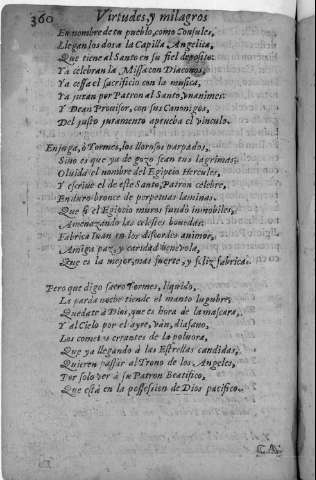 360 Virtudes, y milagros
En nombre de tu pueblo, como Consules,
Llegan los dos a la Capilla Angelica,
Que tiene al Santo en su fiel deposito:
Ya celebran la Missa con Diaconos,
Ya cessa el sacrificio con la musica,
Ya juran por Patron al Santo, vnanimes:
Y Dean Prouisor, con sus Canonigos,
Del justo juramento aprueba el vinculo.
Enjuga, ò Tormes, los llorosos parpados,
Sino es que ya de gozo sean tus lagrimas:
Oluida el nombre del Egipcio Hercules,
Y escriue el de este Santo, Patron celebre,
En duro bronce de perpetuas laminas.
Que si el Egipcio muros fundò inmobiles,
Amenazando las celestes bouedas:
Fabrica Iuan en los discordes animos,
Amiga paz, y caridad beneuola,
Que es la mejor, mas fuerte, y feliz fabrica.
Pero que digo sacro Tormes, liquido,
La parda noche tiende el manto lugubre,
Quedate à Dios, que es hora de la mascara,
Y al Cielo por el ayre, vàn, diafano,
Los cometas errantes de la poluora,
Que ya llegando à las Estrellas candidas,
Quieren passar al Trono de los Angeles,
Por solo ver à su Patron Beatifico,
Que està en la possession de Dios pacifico.